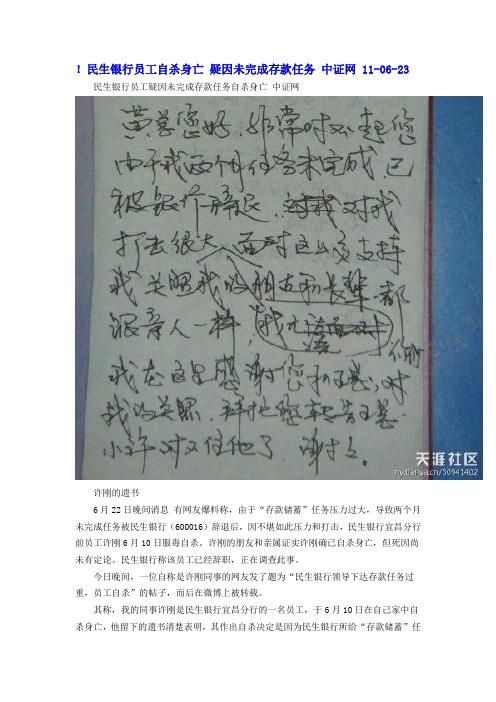 ！民生银行员工自杀身亡 疑因未完成存款任务 中证网 11-06-23
民生银行员工疑因未完成存款任务自杀身亡 中证网
黄总您好，非常对不起您
由于我两个月任务未完成，已
被银行辞退，对我
打击很大，面对这么多支持
我关照我的朋友和长辈都
跟亲人一样，我无
你们
我在这里感谢您和王总对
我的关照，拜托您转告王总
小许对不住他了 谢谢
天涯社区
许刚的遗书
6月22日晚间消息 有网友爆料称，由于“存款储蓄”任务压力过大，导致两个月
未完成任务被民生银行（600016）辞退后，因不堪如此压力和打击，民生银行宜昌分行
前员工许刚6月10日服毒自杀。许刚的朋友和亲属证实许刚确已自杀身亡，但死因尚
未有定论。民生银行称该员工已经辞职，正在调查此事。
今日晚间，一位自称是许刚同事的网友发了题为“民生银行领导下达存款任务过
重，员工自杀”的帖子，而后在微博上被转载。
其称，我的同事许刚是民生银行宜昌分行的一名员工，于6月10日在自己家中自
杀身亡，他留下的遗书清楚表明，其作出自杀决定是因为民生银行所给“存款储蓄”任